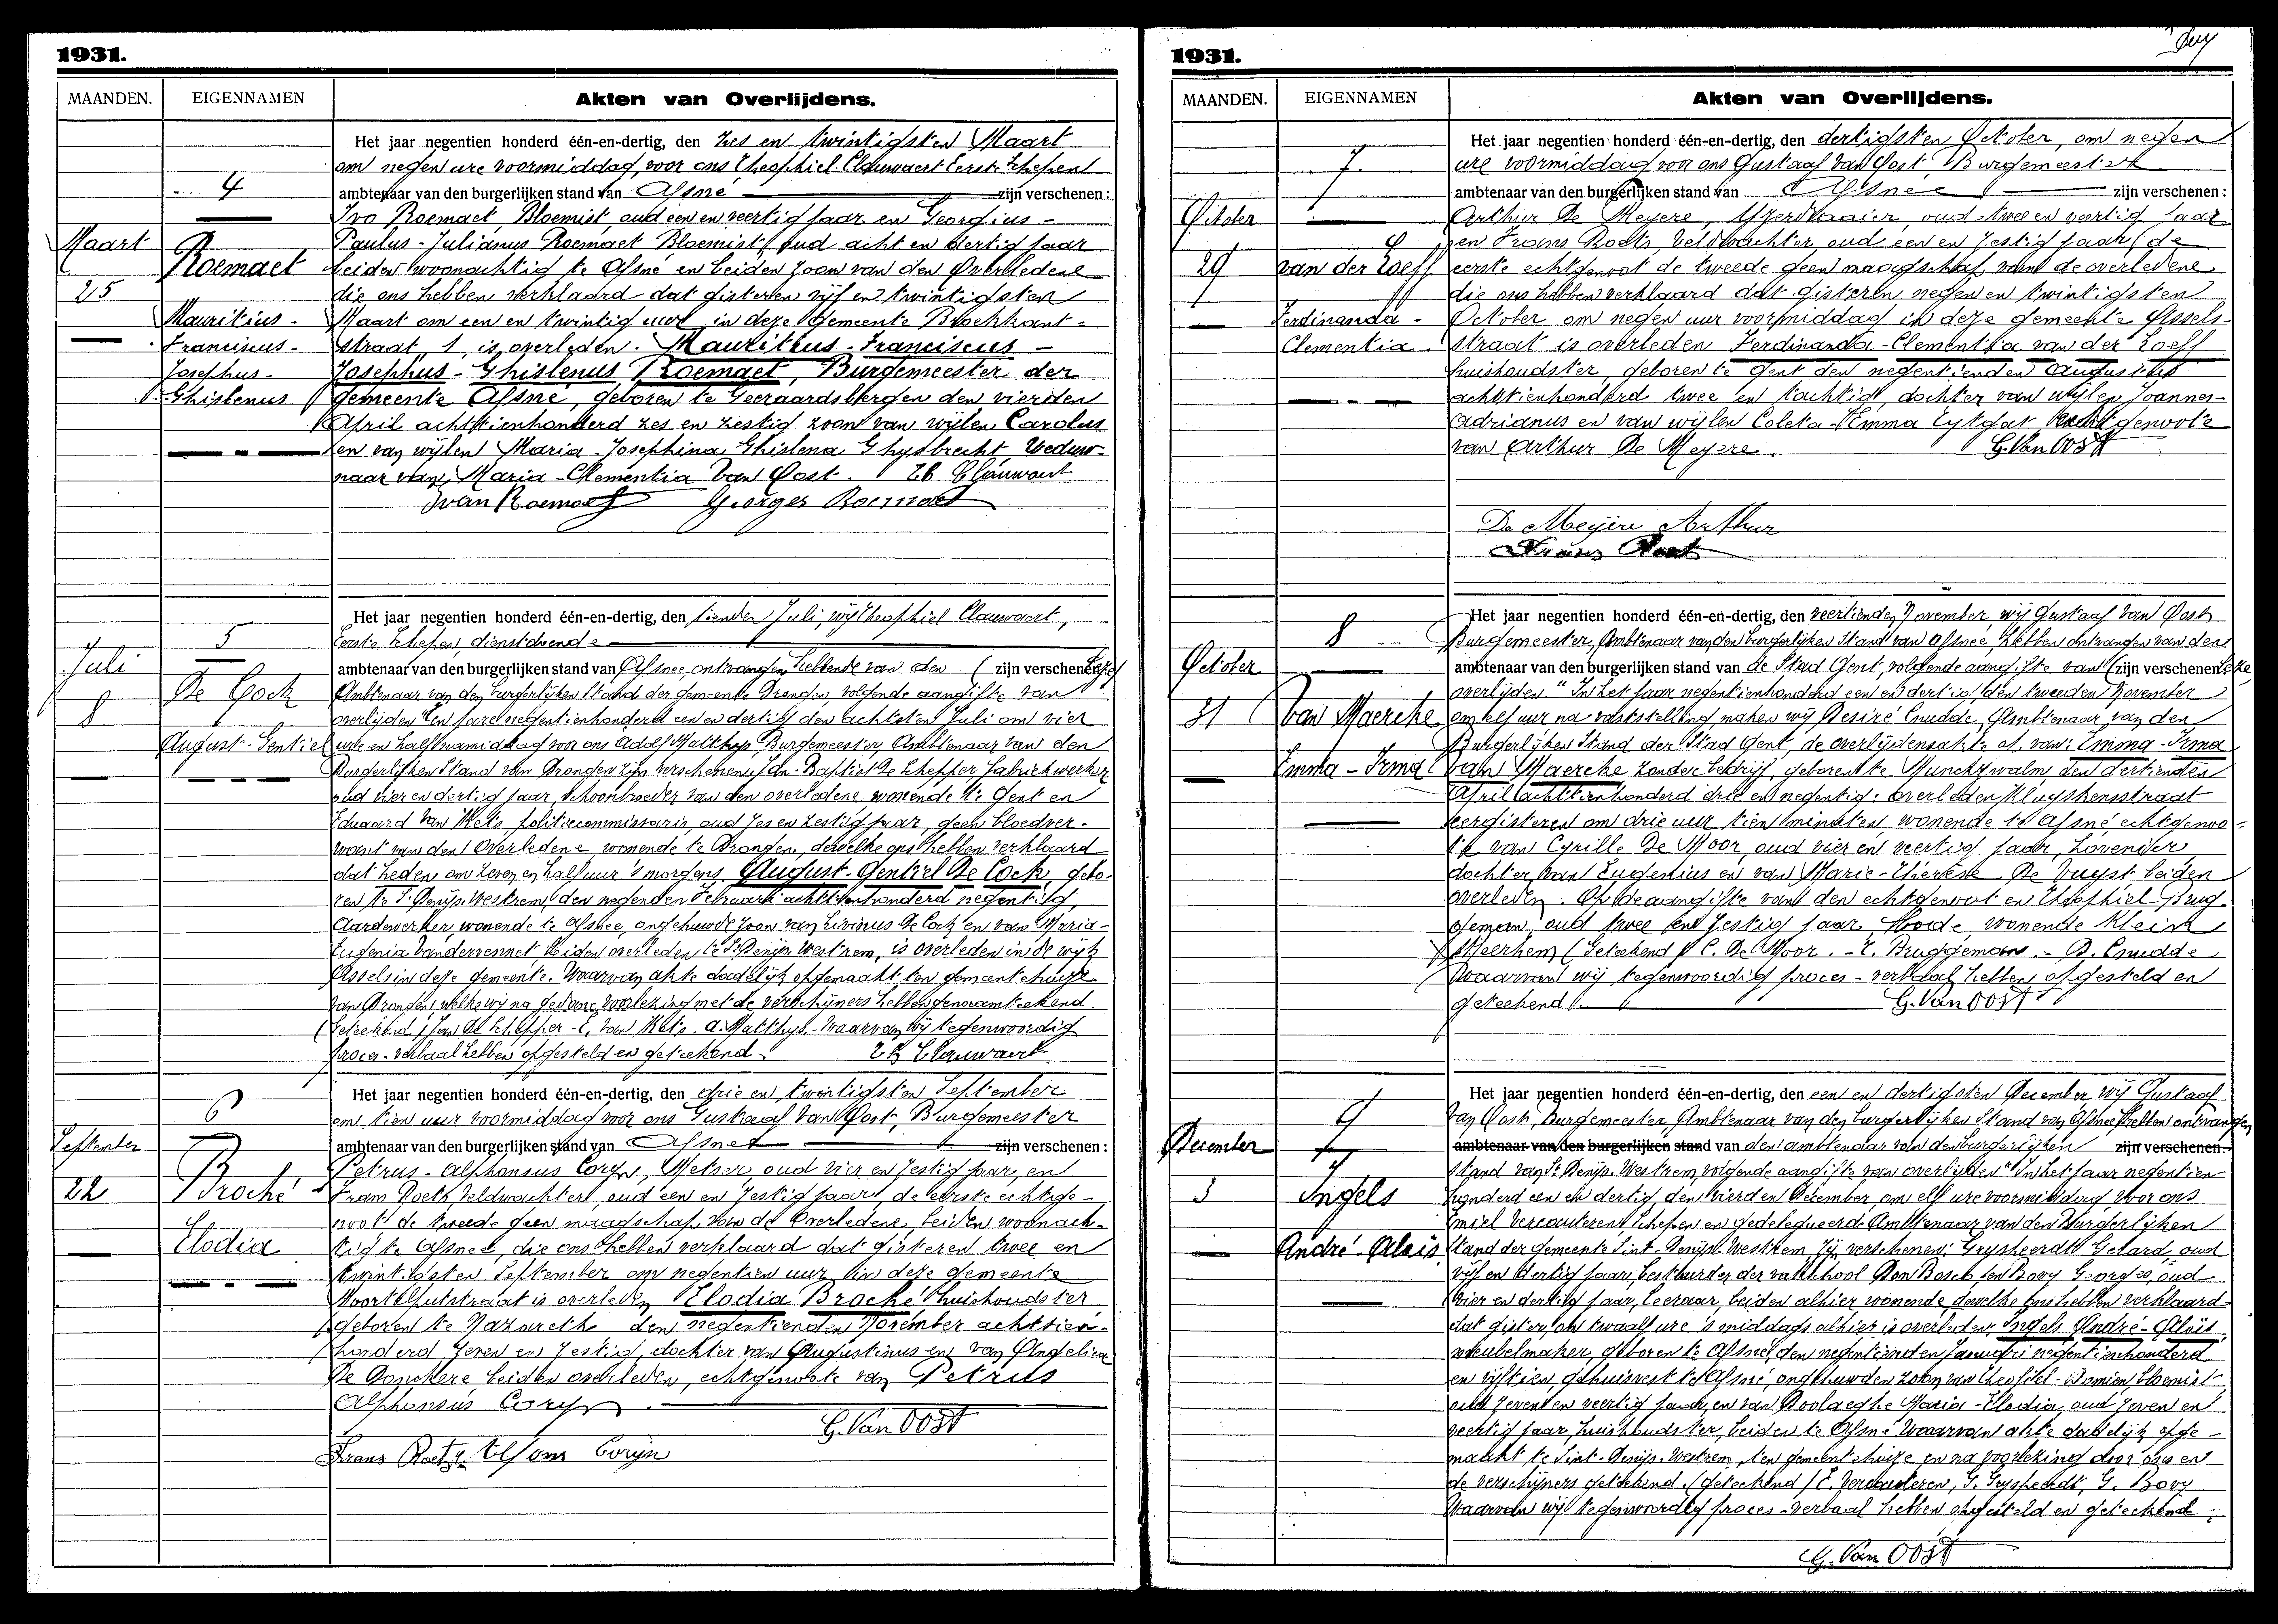 1931.
MAANDEN. EIGENNAMEN Akten van Overlijdens.
Het jaar negentien honderd één-en-dertig, den zes en twintigsten Maart
om negen ure voormiddag, voor ons Theophiel Clauwaert Eerste Schepen
4
ambtenaar van den burgerlijken stand van Afsné zijn verschenen:
Ivo Roemaet, Bloemist, oud een en veertig jaar en Georgius-
Maart
Paulus-Julianus Roemaet Bloemist, oud acht en dertig jaar
Roemaet
beiden woonachtig te Afsné en beiden zoon van den Overledene
25
die ons hebben verklaard dat gisteren vijf en twintigsten
Mauritius-
Maart om een en twintig uur in deze Gemeente Broekkant-
Franciscus-
straat, 1, is overleden. Mauritius-Franciscus-
Josephus-
Josephus-Ghislenus Roemaet, Burgemeester der
Ghislenus
gemeente Afsné, geboren te Geeraardsbergen den vierden
April achttienhonderd zes en zestig zoon van wijlen Carolus
en van wijlen Maria Josephina Ghislena Ghysbrecht, Weduw-
naar van Maria-Clementia Van Oost. Th Clauwaert
Ivan Roemaet Georges Roemaet
Het jaar negentien honderd één-en-dertig, den tienden Juli, wij Theophiel Clauwaert,
5
Eerste Schepen, dienstdoende
Juli
ambtenaar van den burgerlijken stand van Afsnee, ontvangen hebbende van den zijn verschenen
De Cock
Ambtenaar van den burgerlijken Stand der gemeente Drongen, volgende aangifte van
8
overlijden "Ten jare negentienhonderd een en dertig den achtsten Juli om vier
August-Gentiel
ure en half namiddag voor ons Adolf Matthys, Burgemeester, Ambtenaar van den
Burgerlijken Stand van Drongen zijn verschenen. Jan-Baptist De Schepper fabriekwerker
oud vier en dertig jaar, schoonbroeder van den overledene wonende te Gent en
Eduard Van Mets, politiecommissaris, oud zes en zestig jaar, geen bloedver-
want van den Overledene wonende te Drongen, dewelke ons hebben verklaard
dat heden om zeven en half uur 's morgens, August-Gentiel De Cock, gebo-
ren te St Denijs Westrem, den negenden Februari achttienhonderd negentig,
Aardewerker wonende te Afsnee, ongehuwde zoon van Livinus De Cock en van Maria-
Eugenia Vandervennet beiden overleden te St Denijs Westrem, is overleden in de wijk
Assels in deze gemeente. Waarvan akte dadelijk opgemaakt ten gemeentehuize
van Drongen, welke wij na gedane voorlezing met de verschijners hebben genaamteekend.
(Geteekend) Jan De Schepper - E. Van Mets. A. Matthys. Waarvan wij tegenwoordig
proces-verbaal hebben opgesteld en geteekend. Th Clauwaert
Het jaar negentien honderd één-en-dertig, den drie en twintigsten September
6
om tien uur voormiddag voor ons Gustaaf Van Oost, Burgemeester
September
ambtenaar van den burgerlijken stand van Afsnee zijn verschenen:
Petrus-Alphonsus Coryn, Metser, oud vier en zestig jaar, en
22
Broché
Frans Roets, Veldwachter, oud een en zestig jaar, de eerste echtge-
noot de tweede geen maagschap van de Overledene, beiden woonach-
Elodia
tig te Afsnee, die ons hebben verklaard dat gisteren twee en
twintigsten September om negentien uur in deze gemeente
is overleden Elodia Broché huishoudster
geboren te Nazareth den negentienden November achttien-
honderd zeven en zestig, dochter van Augustinus en van Angelica
De Donckere beiden overleden, echtgenoote van Petrus
Alphonsus Coryn.
G. Van Oost
Frans Roets Alfons Coryn
1931.
MAANDEN. EIGENNAMEN Akten van Overlijdens.
Het jaar negentien honderd één-en-dertig, den dertigsten October, om negen
7.
ure voormiddag voor ons Gustaaf Van Oost, Burgemeester
ambtenaar van den burgerlijken stand van Afsnee zijn verschenen:
October
Arthur De Meyere, Ijzerdraaier, oud twee en veertig jaar
en Frans Roets, veldwachter, oud een en zestig jaar, de
29
van der Loeff
eerste echtgenoot de tweede geen maagschap van de overledene
die ons hebben verklaard dat gisteren negen en twintigsten
Ferdinanda-
October om negen uur voormiddag in deze gemeente Assels-
Clementia.
straat is overleden Ferdinanda-Clementia van der Loeff
huishoudster, geboren te Gent den negentienden Augustus
achttienhonderd twee en tachtig, dochter van wijlen Joannes-
Adrianus en van wijlen Coleta-Emma Eytgat echtgenoote
van Arthur De Meyere. G. Van Oost
De Meyere Arthur
Frans Roets
Het jaar negentien honderd één-en-dertig, den veertienden November, wij Gustaaf Van Oost
8
Burgemeester, Ambtenaar van den burgerlijken Stand van Afsnee, hebben ontvangen van den
October
ambtenaar van den burgerlijken stand van de Stad Gent, volgende aangifte van zijn verschenen
overlijden "In het jaar negentienhonderd een en dertig, den tweeden November
31
Van Maercke
om elf uur na vaststelling maken wij Desiré Cnudde, Ambtenaar van den
Burgerlijken Stand der Stad Gent, de overlijdensakte op van: Emma-Irma
Emma-Irma
Van Maercke zonder bedrijf, geboren te Munckzwalm, den dertienden
April achttienhonderd drie en negentig: overleden Kluyskensstraat
eergisteren om drie uur tien minuten wonende te Afsné, echtgenoo-
te van Cyrille De Moor, oud vier en veertig jaar, hovenier
dochter van Eugenius en van Marie-Therese De Vuyst beiden
overleden. Op de aangifte van den echtgenoot en Theophiel Brug-
geman, oud twee en zestig jaar, bode, wonende Klein
Meerhem (Geteekend) C. De Moor. - T. Bruggeman. - D. Cnudde
Waarvan wij tegenwoordig proces-verbaal hebben opgesteld en
geteekend G. Van Oost
Het jaar negentien honderd één-en-dertig, den een en dertigsten December wij Gustaaf
9
Van Oost, Burgemeester, Ambtenaar van den burgerlijken Stand van Afsnee, hebben ontvangen
December
ambtenaar van den burgerlijken stand van den ambtenaar van den burgerlijken zijn verschenen:
stand van St Denijs-Westrem, volgende aangifte van overlijden "In het jaar negentien-
3
Ingels
honderd een en dertig, den vierden December, om elf ure voormiddag voor ons
Emiel Vercauteren, Schepen en gedelegueerde Ambtenaar van den Burgerlijken
André-Aloïs
Stand der gemeente Sint-Denijs-Westrem zijn verschenen: Gryspeerdt Gerard, oud
vijf en dertig jaar, bestuurder der vakschool Don Bosco en Bovy Georges, oud
vier en dertig jaar, Leeraar, beiden alhier wonende dewelke ons hebben verklaard
dat gister, om twaalf ure 's middags alhier is overleden, Ingels André-Aloïs,
meubelmaker, geboren te Afsnee, den negentienden Januari negentienhonderd
en vijftien, gehuisvest te Afsné, ongehuwden zoon van Theofiel-Damien, bloemist
oud zeven en veertig jaar, en van Doolaeghe Maria-Elodia, oud zeven en
veertig jaar, huishoudster, beiden te Afsné. Waarvan akte dadelijk opge-
maakt te Sint-Denijs-Westrem, ten gemeentehuize en na voorlezing door ons en
de verschijners geteekend. (geteekend) E. Vercauteren, G. Gryspeerdt, G. Bovy
Waarvan wij tegenwoordig proces-verbaal hebben opgesteld en geteekend.
G. Van Oost